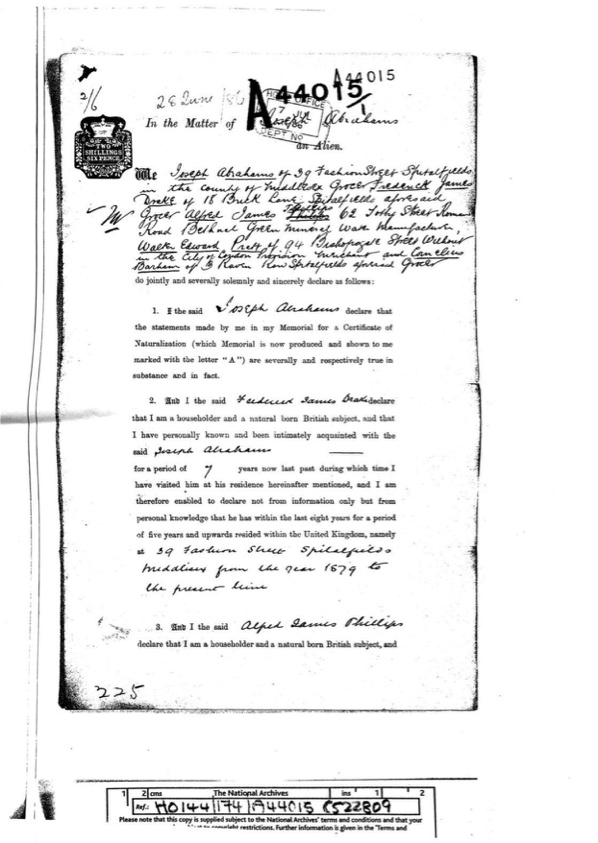 A44015
A44015/1
2/6
28 June /86
HOME OFFICE
7 JUL 86
DEPT NO
In the Matter of Joseph Abrahams
an Alien.
TWO
SHILLINGS
SIX PENCE
We Joseph Abrahams of 39 Fashion Street Spitalfields
in the County of Middlesex Grocer Frederick James
Drake of 18 Buck Lane Spitalfields aforesaid
Grocer Alfred James Phillips 62 Street Roman
Road Bethnal Green Mineral Water Manufacturer,
Walter Edward Pratt of 94 Bishopsgate Street Without
in the City of London Provision Merchant and Cornelius
Barham of 3 Raven Row Spitalfields aforesaid Grocer
do jointly and severally solemnly and sincerely declare as follows:
1. I the said Joseph Abrahams declare that
the statements made by me in my Memorial for a Certificate of
Naturalization (which Memorial is now produced and shown to me
marked with the letter "A") are severally and respectively true in
substance and in fact.
2. And I the said Frederick James Drake declare
that I am a householder and a natural born British subject, and that
I have personally known and been intimately acquainted with the
said Joseph Abrahams
for a period of 7 years now last past during which time I
have visited him at his residence hereinafter mentioned, and I am
therefore enabled to declare not from information only but from
personal knowledge that he has within the last eight years for a period
of five years and upwards resided within the United Kingdom, namely
at 39 Fashion Street Spitalfields
Middlesex from the year 1879 to
the present time
3. And I the said Alfred James Phillips
declare that I am a householder and a natural born British subject, and
225
1 2 cms The National Archives ins 1 2
Ref.: HO144/174/A44015 C522809
Please note that this copy is supplied subject to the National Archives' terms and conditions and that your
copyright restrictions. Further information is given in the 'Terms and